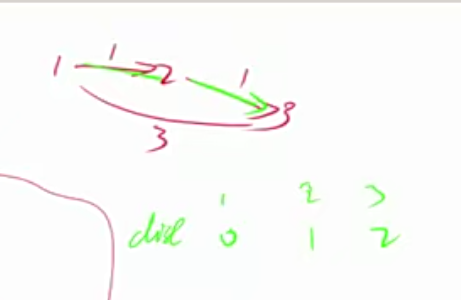 1 1 2 1 3
3
1 2 3
dist 0 1 2